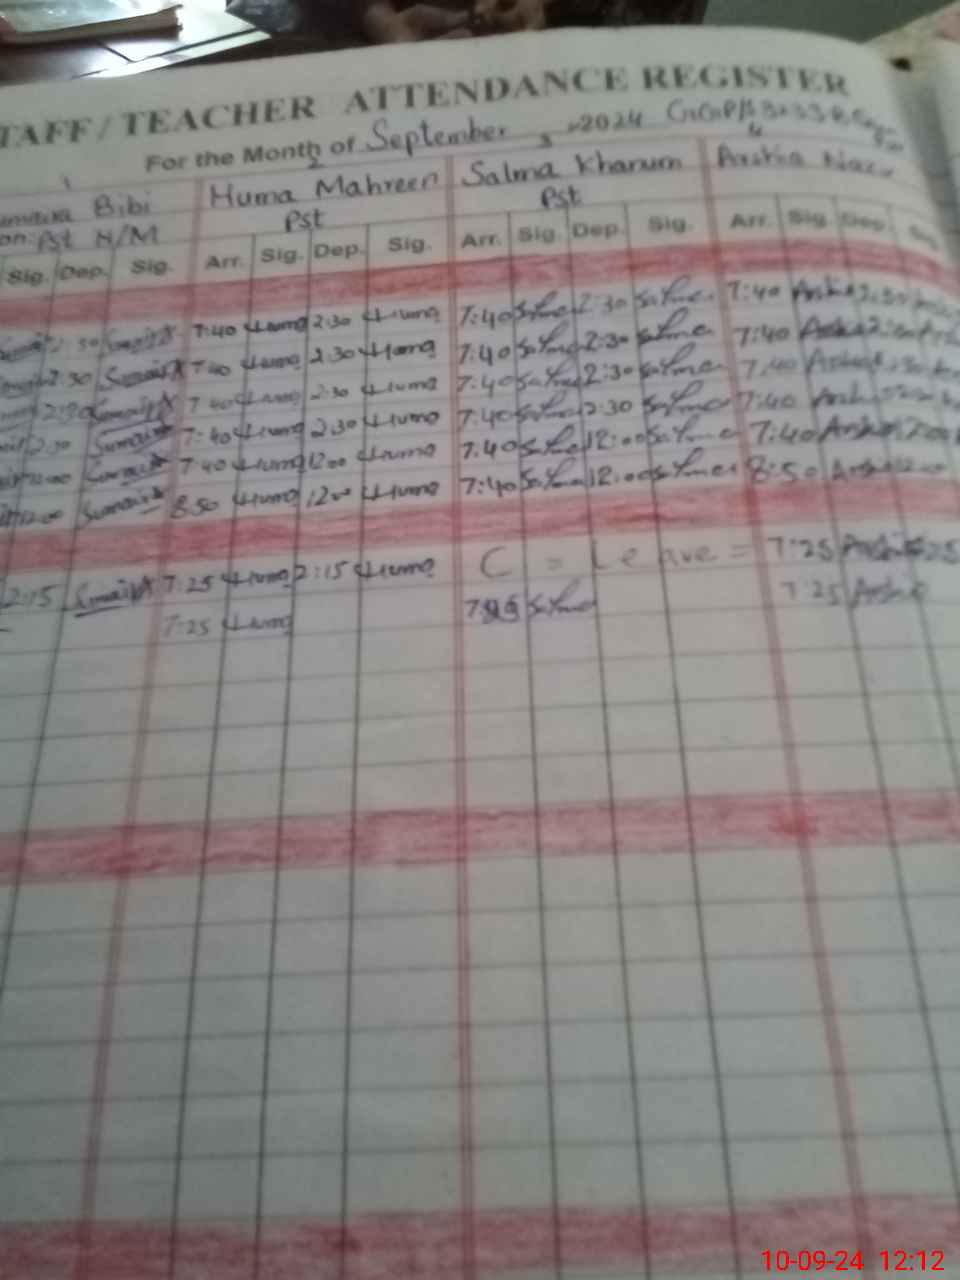 TAFF / TEACHER ATTENDANCE REGISTER
For the Month of September 2024
1 2 3 4
Bibi Huma Mahreen Salma Khanum Arshia
Pst H/M Pst Pst
Sig. Dep. Sig. Arr. Sig. Dep. Sig. Arr. Sig. Dep. Sig. Arr. Sig. Dep.
7:40 Huma 2:30 Huma 7:40 Salma 2:30 Salma 7:40 Arshia 2:30
2:30 Sumaira 7:40 Huma 2:30 Huma 7:40 Salma 2:30 Salma 7:40 Arshia
2:30 Sumaira 7:40 Huma 2:30 Huma 7:40 Salma 2:30 Salma 7:40 Arshia
2:30 Sumaira 7:40 Huma 2:30 Huma 7:40 Salma 2:30 Salma 7:40
12:00 Sumaira 7:40 Huma 12:00 Huma 7:40 Salma 12:00 Salma 7:40 Arshia
12:00 Sumaira 8:50 Huma 12:00 Huma 7:40 Salma 12:00 Salma 8:50 Arshia 12:00
2:15 Sumaira 7:25 Huma 2:15 Huma C = Leave = 7:25 Arshia
7:25 Huma Salma 7:25 Arshia
10-09-24 12:12